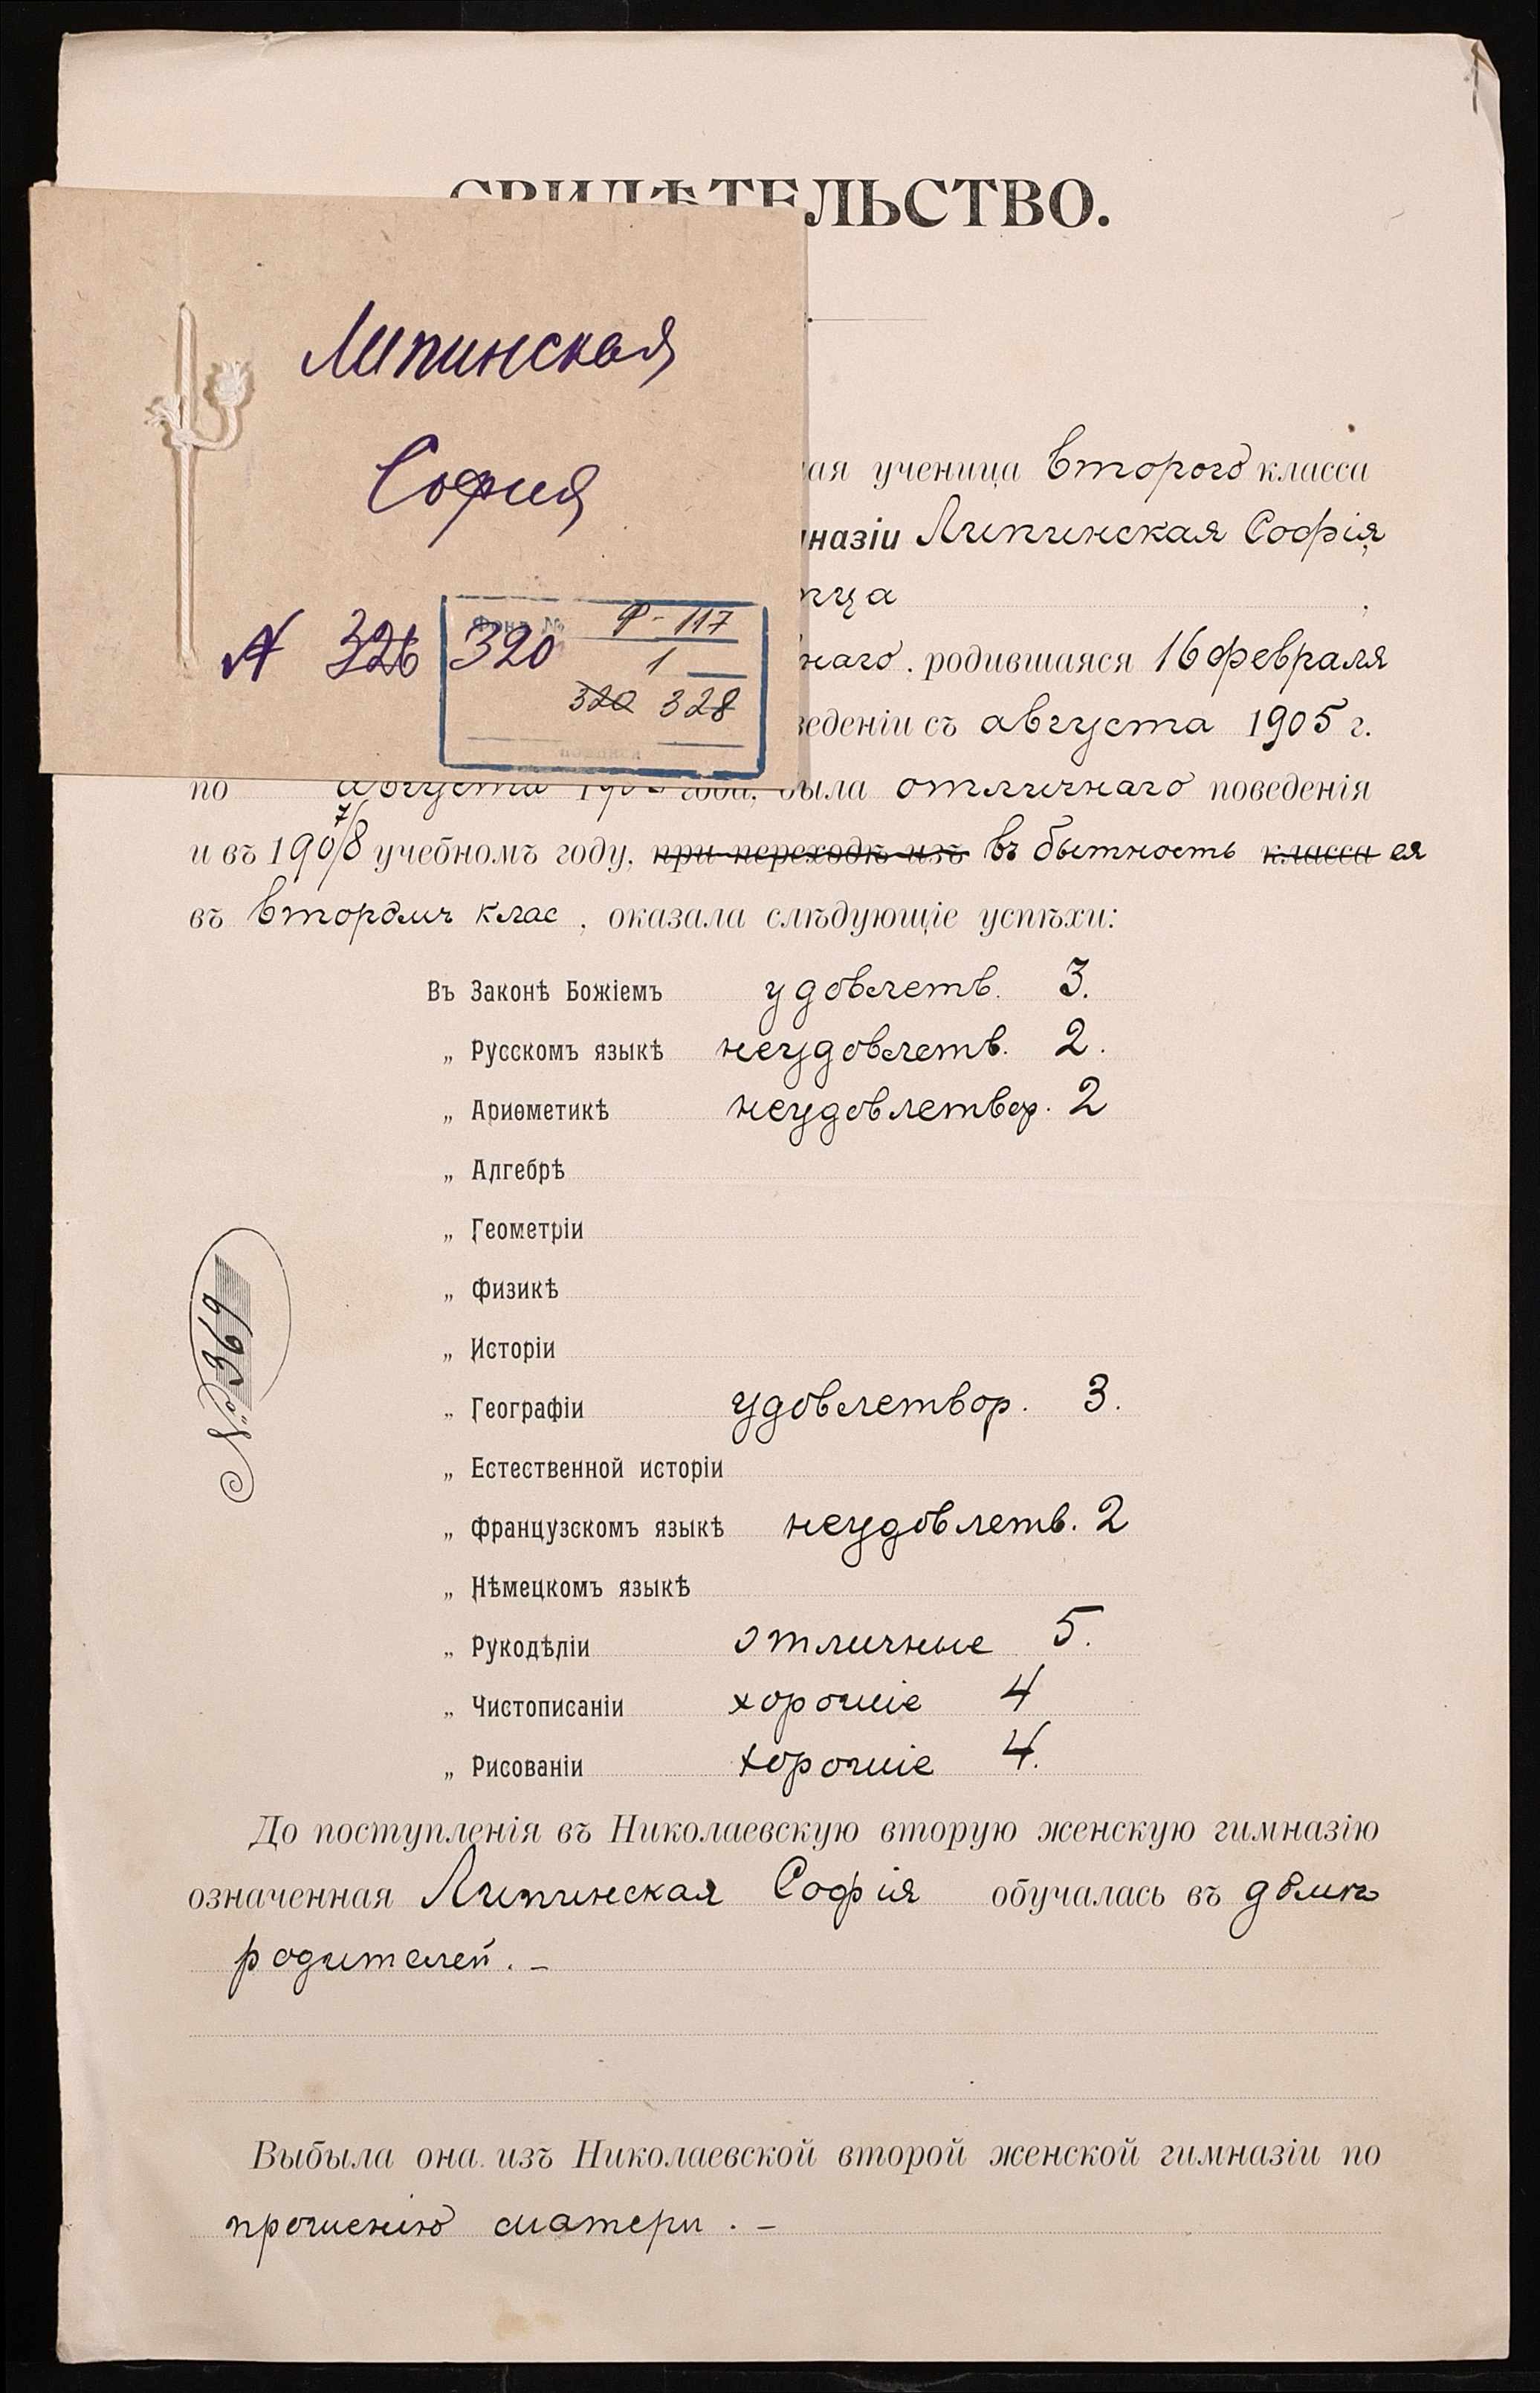 СВИДѢТЕЛЬСТВО.
Липинская
София
№ 326 320
Фонд № Ф-117
1
320 328
ученица второго класса
Липинская Софія
родившаяся 16 февраля
съ августа 1905 г.
по августа года, была отличнаго поведенія
и въ 1907/8 учебномъ году, при переходѣ изъ въ бытность класса ея
въ второмъ клас, оказала слѣдующіе успѣхи:
Въ Законѣ Божіемъ удовлетв. 3.
„ Русскомъ языкѣ неудовлетв. 2.
„ Ариѳметикѣ неудовлетвор. 2
„ Алгебрѣ
„ Геометріи
„ Физикѣ
„ Исторіи
„ Географіи удовлетвор. 3.
„ Естественной исторіи
„ Французскомъ языкѣ неудовлетв. 2
„ Нѣмецкомъ языкѣ
„ Рукодѣліи отличные 5.
„ Чистописаніи хорошіе 4
„ Рисованіи хорошіе 4.
№ 369
До поступленія въ Николаевскую вторую женскую гимназію
означенная Липинская Софія обучалась въ домѣ
родителей. –
Выбыла она изъ Николаевской второй женской гимназіи по
прошенію матери. –